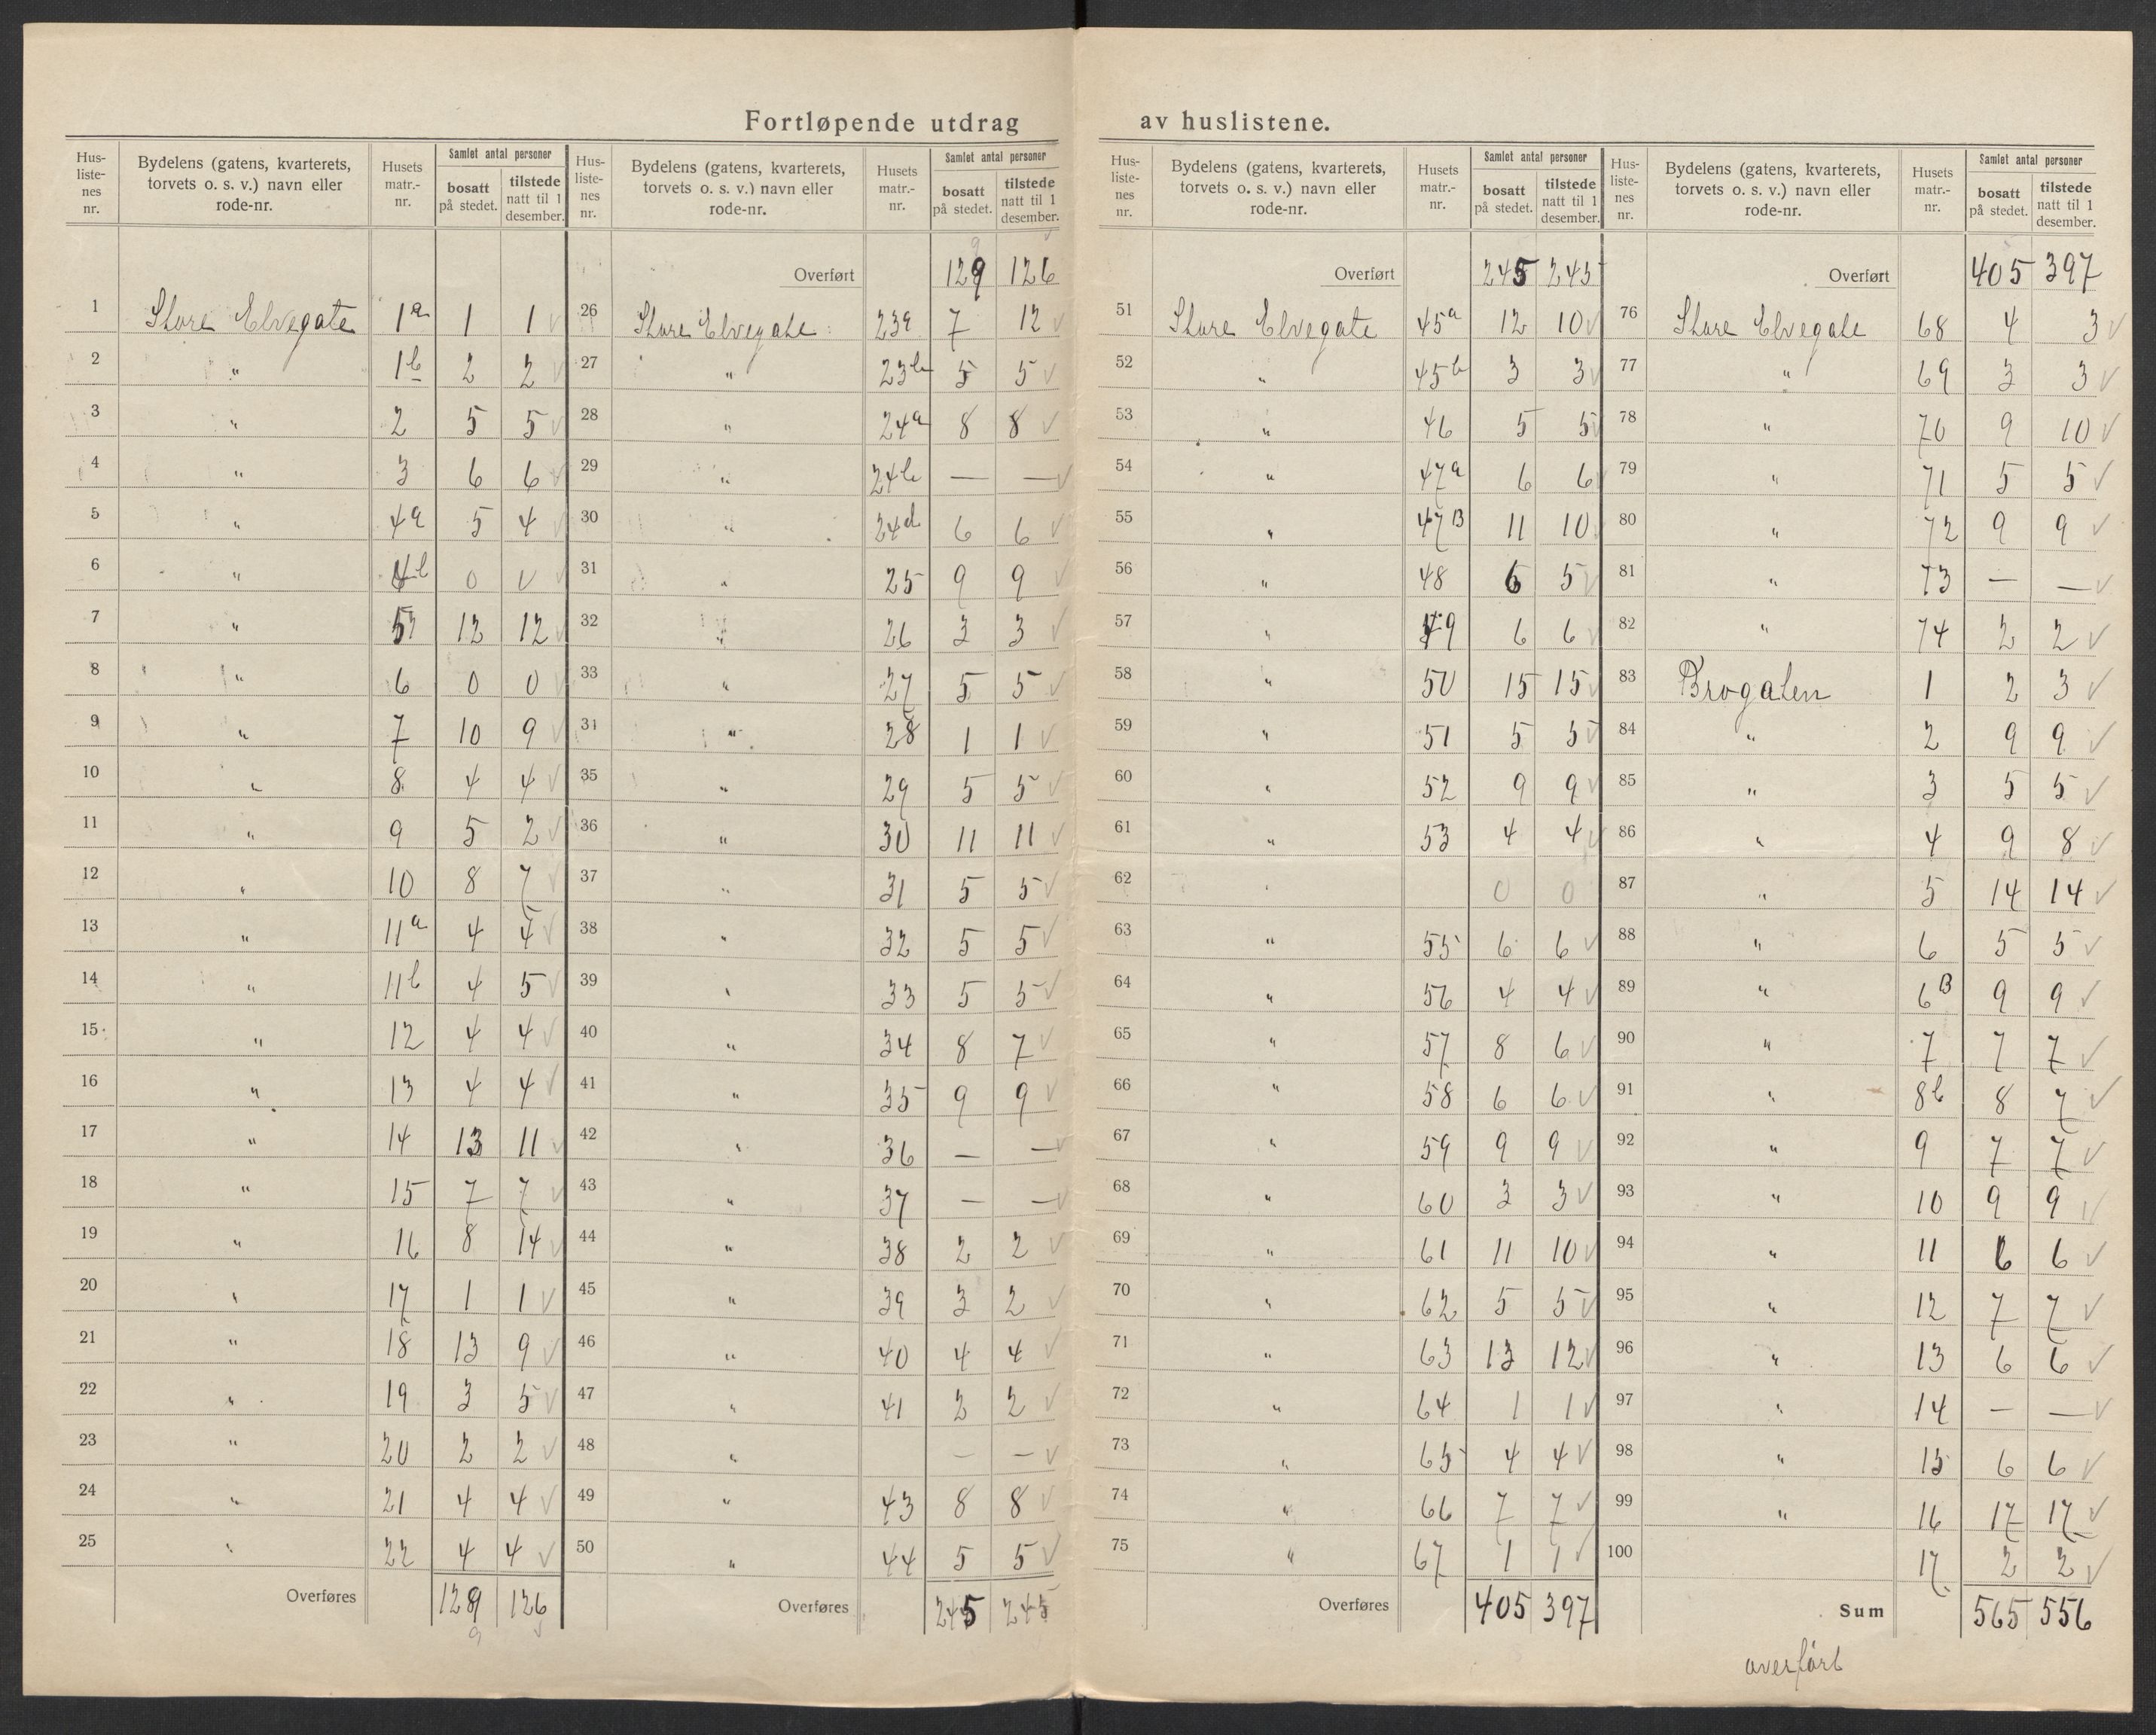 Fortløpende utdrag av huslistene.
Hus-listenes nr. Bydelens (gatens, kvarterets, torvets o. s. v.) navn eller rode-nr. Husets matr.-nr. Samlet antal personer bosatt på stedet. tilstede natt til 1 desember.
1 Store Elvegate 1a 1 1 ✓
2 " 1b 2 2 ✓
3 " 2 5 5 ✓
4 " 3 6 6 ✓
5 " 4a 5 4 ✓
6 " 4b 0 0 ✓
7 " 5 12 12 ✓
8 " 6 0 0 ✓
9 " 7 10 9 ✓
10 " 8 4 4 ✓
11 " 9 5 2 ✓
12 " 10 8 7 ✓
13 " 11a 4 4 ✓
14 " 11b 4 5 ✓
15 " 12 4 4 ✓
16 " 13 4 4 ✓
17 " 14 13 11 ✓
18 " 15 7 7 ✓
19 " 16 8 14 ✓
20 " 17 1 1 ✓
21 " 18 13 9 ✓
22 " 19 3 5 ✓
23 " 20 2 2 ✓
24 " 21 4 4 ✓
25 " 22 4 4 ✓
Overføres 129 126
Hus-listenes nr. Bydelens (gatens, kvarterets, torvets o. s. v.) navn eller rode-nr. Husets matr.-nr. Samlet antal personer bosatt på stedet. tilstede natt til 1 desember.
Overført 129 126
26 Store Elvegate 23a 7 12 ✓
27 " 23b 5 5 ✓
28 " 24a 8 8 ✓
29 " 24b — — ✓
30 " 24d 6 6 ✓
31 " 25 9 9 ✓
32 " 26 3 3 ✓
33 " 27 5 5 ✓
34 " 28 1 1 ✓
35 " 29 5 5 ✓
36 " 30 11 11 ✓
37 " 31 5 5 ✓
38 " 32 5 5 ✓
39 " 33 5 5 ✓
40 " 34 8 7 ✓
41 " 35 9 9 ✓
42 " 36 — — ✓
43 " 37 — — ✓
44 " 38 2 2 ✓
45 " 39 3 2 ✓
46 " 40 4 4 ✓
47 " 41 2 2 ✓
48 " — — ✓
49 " 43 8 8 ✓
50 " 44 5 5 ✓
Overføres 245 245
Hus-listenes nr. Bydelens (gatens, kvarterets, torvets o. s. v.) navn eller rode-nr. Husets matr.-nr. Samlet antal personer bosatt på stedet. tilstede natt til 1 desember.
Overført 245 245
51 Store Elvegate 45a 12 10 ✓
52 " 45b 3 3 ✓
53 " 46 5 5 ✓
54 " 47a 6 6 ✓
55 " 47B 11 10
56 " 48 6 5 ✓
57 " 49 6 6 ✓
58 " 50 15 15 ✓
59 " 51 5 5 ✓
60 " 52 9 9 ✓
61 " 53 4 4 ✓
62 " 0 0
63 " 55 6 6 ✓
64 " 56 4 4 ✓
65 " 57 8 6 ✓
66 " 58 6 6 ✓
67 " 59 9 9 ✓
68 " 60 3 3 ✓
69 " 61 11 10 ✓
70 " 62 5 5 ✓
71 " 63 13 12 ✓
72 " 64 1 1 ✓
73 " 65 4 4 ✓
74 " 66 7 7 ✓
75 " 67 1 1 ✓
Overføres 405 397
Hus-listenes nr. Bydelens (gatens, kvarterets, torvets o. s. v.) navn eller rode-nr. Husets matr.-nr. Samlet antal personer bosatt på stedet. tilstede natt til 1 desember.
Overført 405 397
76 Store Elvegate 68 4 3 ✓
77 " 69 3 3 ✓
78 " 70 9 10 ✓
79 " 71 5 5 ✓
80 " 72 9 9 ✓
81 " 73 — — ✓
82 " 74 2 2 ✓
83 Brogaten 1 2 3 ✓
84 " 2 9 9 ✓
85 " 3 5 5 ✓
86 " 4 9 8 ✓
87 " 5 14 14 ✓
88 " 6 5 5 ✓
89 " 6B 9 9 ✓
90 " 7 7 7 ✓
91 " 8b 8 7 ✓
92 " 9 7 7 ✓
93 " 10 9 9 ✓
94 " 11 6 6 ✓
95 " 12 7 7 ✓
96 " 13 6 6 ✓
97 " 14 — — ✓
98 " 15 6 6 ✓
99 " 16 17 17 ✓
100 17 2 2 ✓
Sum 565 556
overført